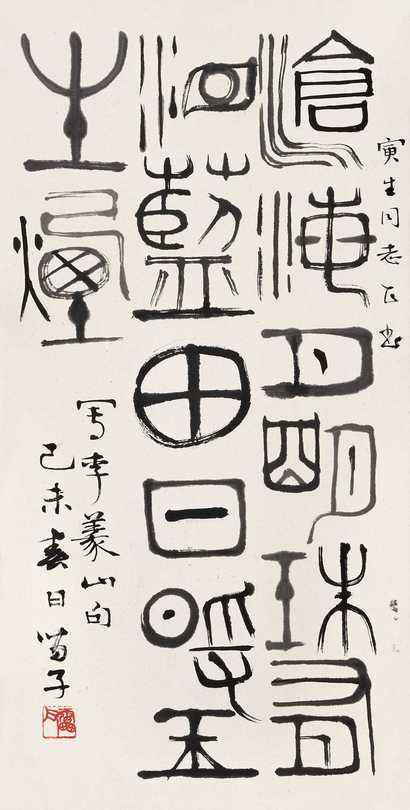 寅生同志正
滄海月明珠有
泪藍田日暖玉
生煙
寫李義山句
己未春日苗子